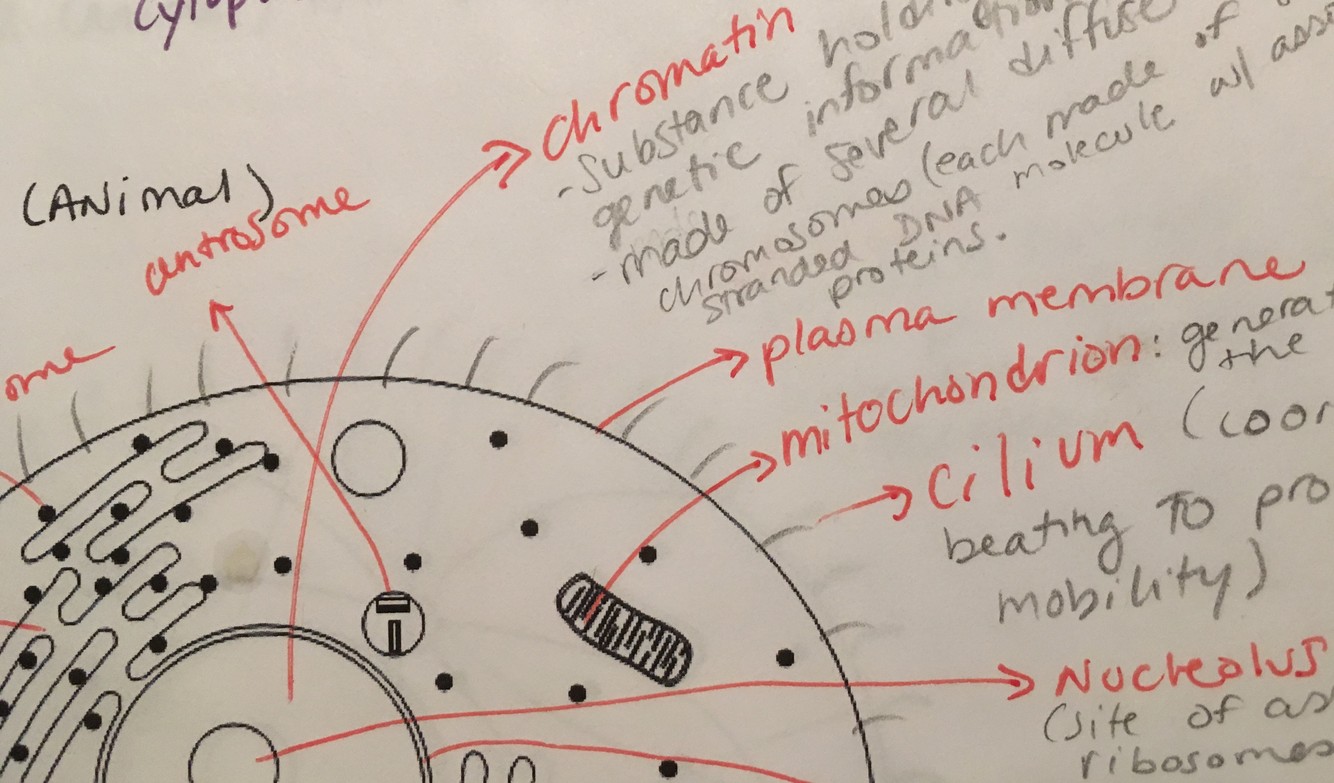 chromatin
- substance
genetic information
- made of several diffuse
chromosomes (each made of
stranded DNA molecule w/
proteins.
(ANimal)
centrosome
ome
plasma membrane
mitochondrion: generat
the
Cilium (coor
beating to pro
mobility)
Nucleolus
(site of as
ribosomes